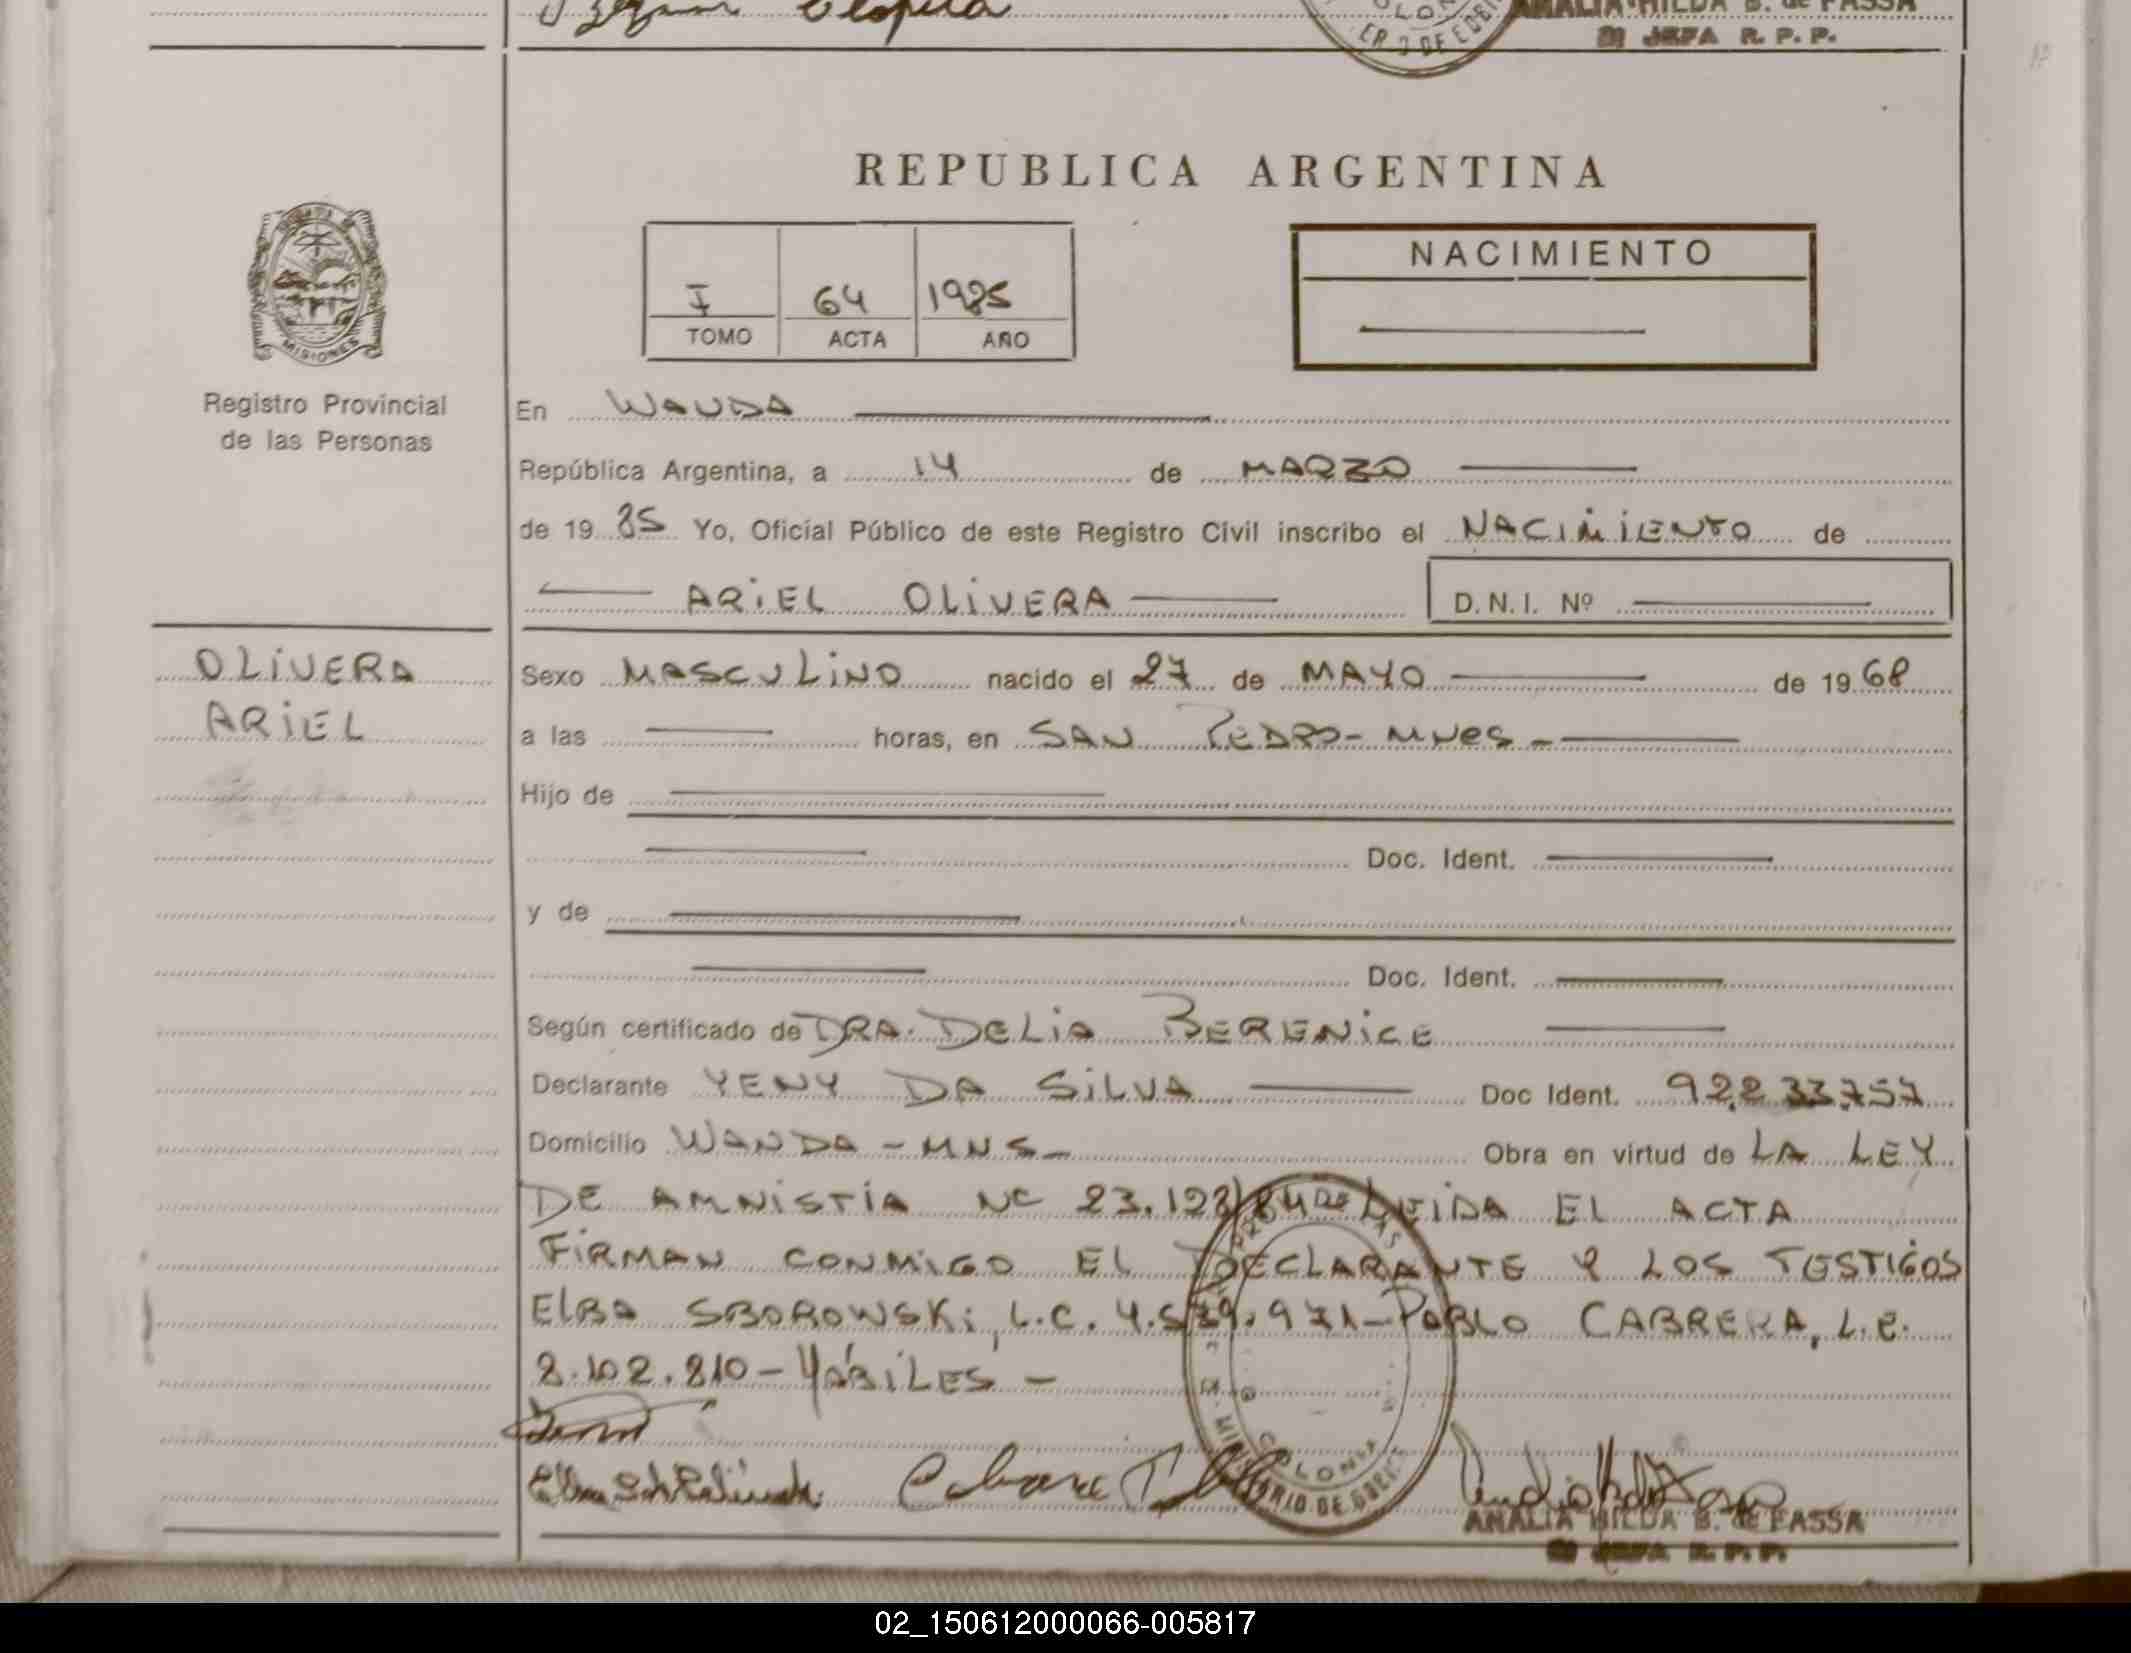 AMALIA HILDA B. de FASSA
JEFA R. P. P.
REPUBLICA ARGENTINA
MISIONES
Registro Provincial
de las Personas
I 64 1985
TOMO ACTA AÑO
NACIMIENTO
En WANDA
República Argentina, a 14 de MARZO
de 19 85 Yo, Oficial Público de este Registro Civil inscribo el NACIMIENTO de
ARIEL OLIVERA D.N.I. Nº
OLIVERA
ARIEL
Sexo MASCULINO nacido el 27 de MAYO de 19 68
a las horas, en SAN PEDRO - MNES -
Hijo de
Doc. Ident.
y de
Doc. Ident.
Según certificado de DRA. DELIA BERENICE
Declarante YENY DA SILVA Doc Ident. 92.233.757
Domicilio WANDA - MNS - Obra en virtud de LA LEY
DE AMNISTIA Nº 23.128/84 LEIDA EL ACTA
FIRMAN CONMIGO EL DECLARANTE Y LOS TESTIGOS
ELBA SBOROWSKI, L.C. 4.539.971 - PABLO CABRERA, L.E.
8.102.810 - HÁBILES -
COLONIA
AMALIA HILDA B. de FASSA
JEFA R. P. P.
02_150612000066-005817